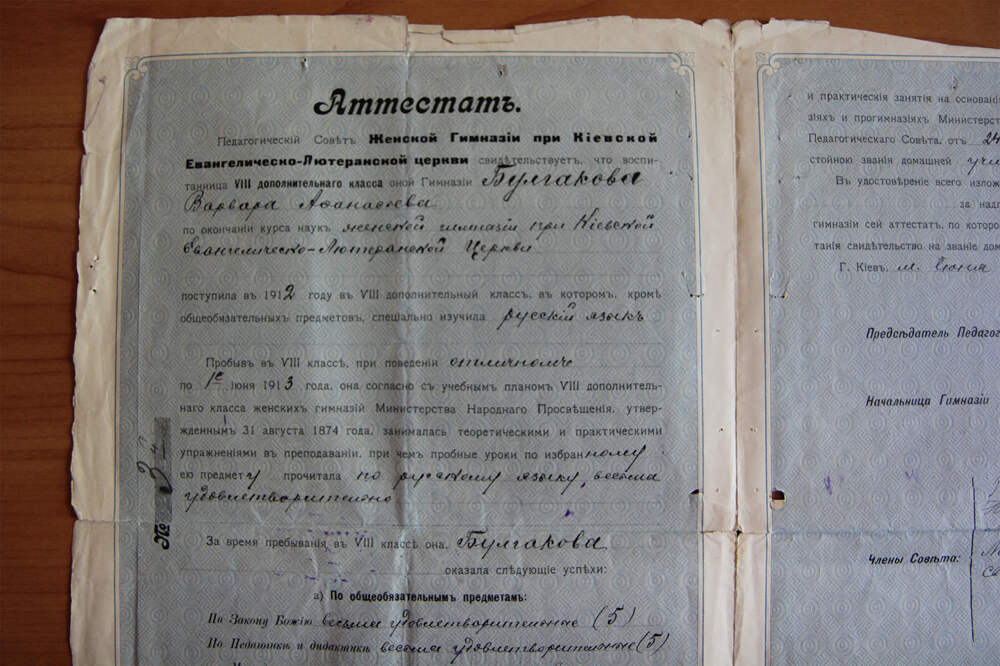 Аттестатъ.
Педагогическій Совѣтъ Женской Гимназіи при Кіевской
Евангелическо-Лютеранской церкви свидѣтельствуетъ, что воспи-
танница VIII дополнительнаго класса оной Гимназіи Булгакова
Варвара Афанасьева
по окончаніи курса наукъ женской гимназіи при Кіевской
Евангелическо-Лютеранской Церкви
поступила въ 1912 году въ VIII дополнительный классъ, въ которомъ, кромѣ
общеобязательныхъ предметовъ, спеціально изучила русскій языкъ
Пробывъ въ VIII классѣ, при поведеніи отличномъ
по 1е Іюня 1913 года, она согласно съ учебнымъ планомъ VIII дополнитель-
наго класса женскихъ гимназій Министерства Народнаго Просвѣщенія, утвер-
жденнымъ 31 августа 1874 года, занималась теоретическими и практическими
упражненіями въ преподаваніи, при чемъ пробные уроки по избранному
ею предмету прочитала по русскому языку весьма
удовлетворительно
За время пребыванія въ VIII классѣ она, Булгакова
оказала слѣдующіе успѣхи:
а) По общеобязательнымъ предметамъ:
По Закону Божію весьма удовлетворительные (5)
По Педагогикѣ и дидактикѣ весьма удовлетворительные (5)
№ 34
и практическія занятія на основані
зіяхъ и прогимназіяхъ Министерст
Педагогическаго Совѣта, отъ 24
стойною званія домашней учи
Въ удостовѣреніе всего излож
за надл
гимназіи сей аттестатъ, по которо
танія свидѣтельство на званіе дом
Г. Кіевъ, Іюня
Предсѣдатель Педагог
Начальница Гимназіи
Члены Совѣта: